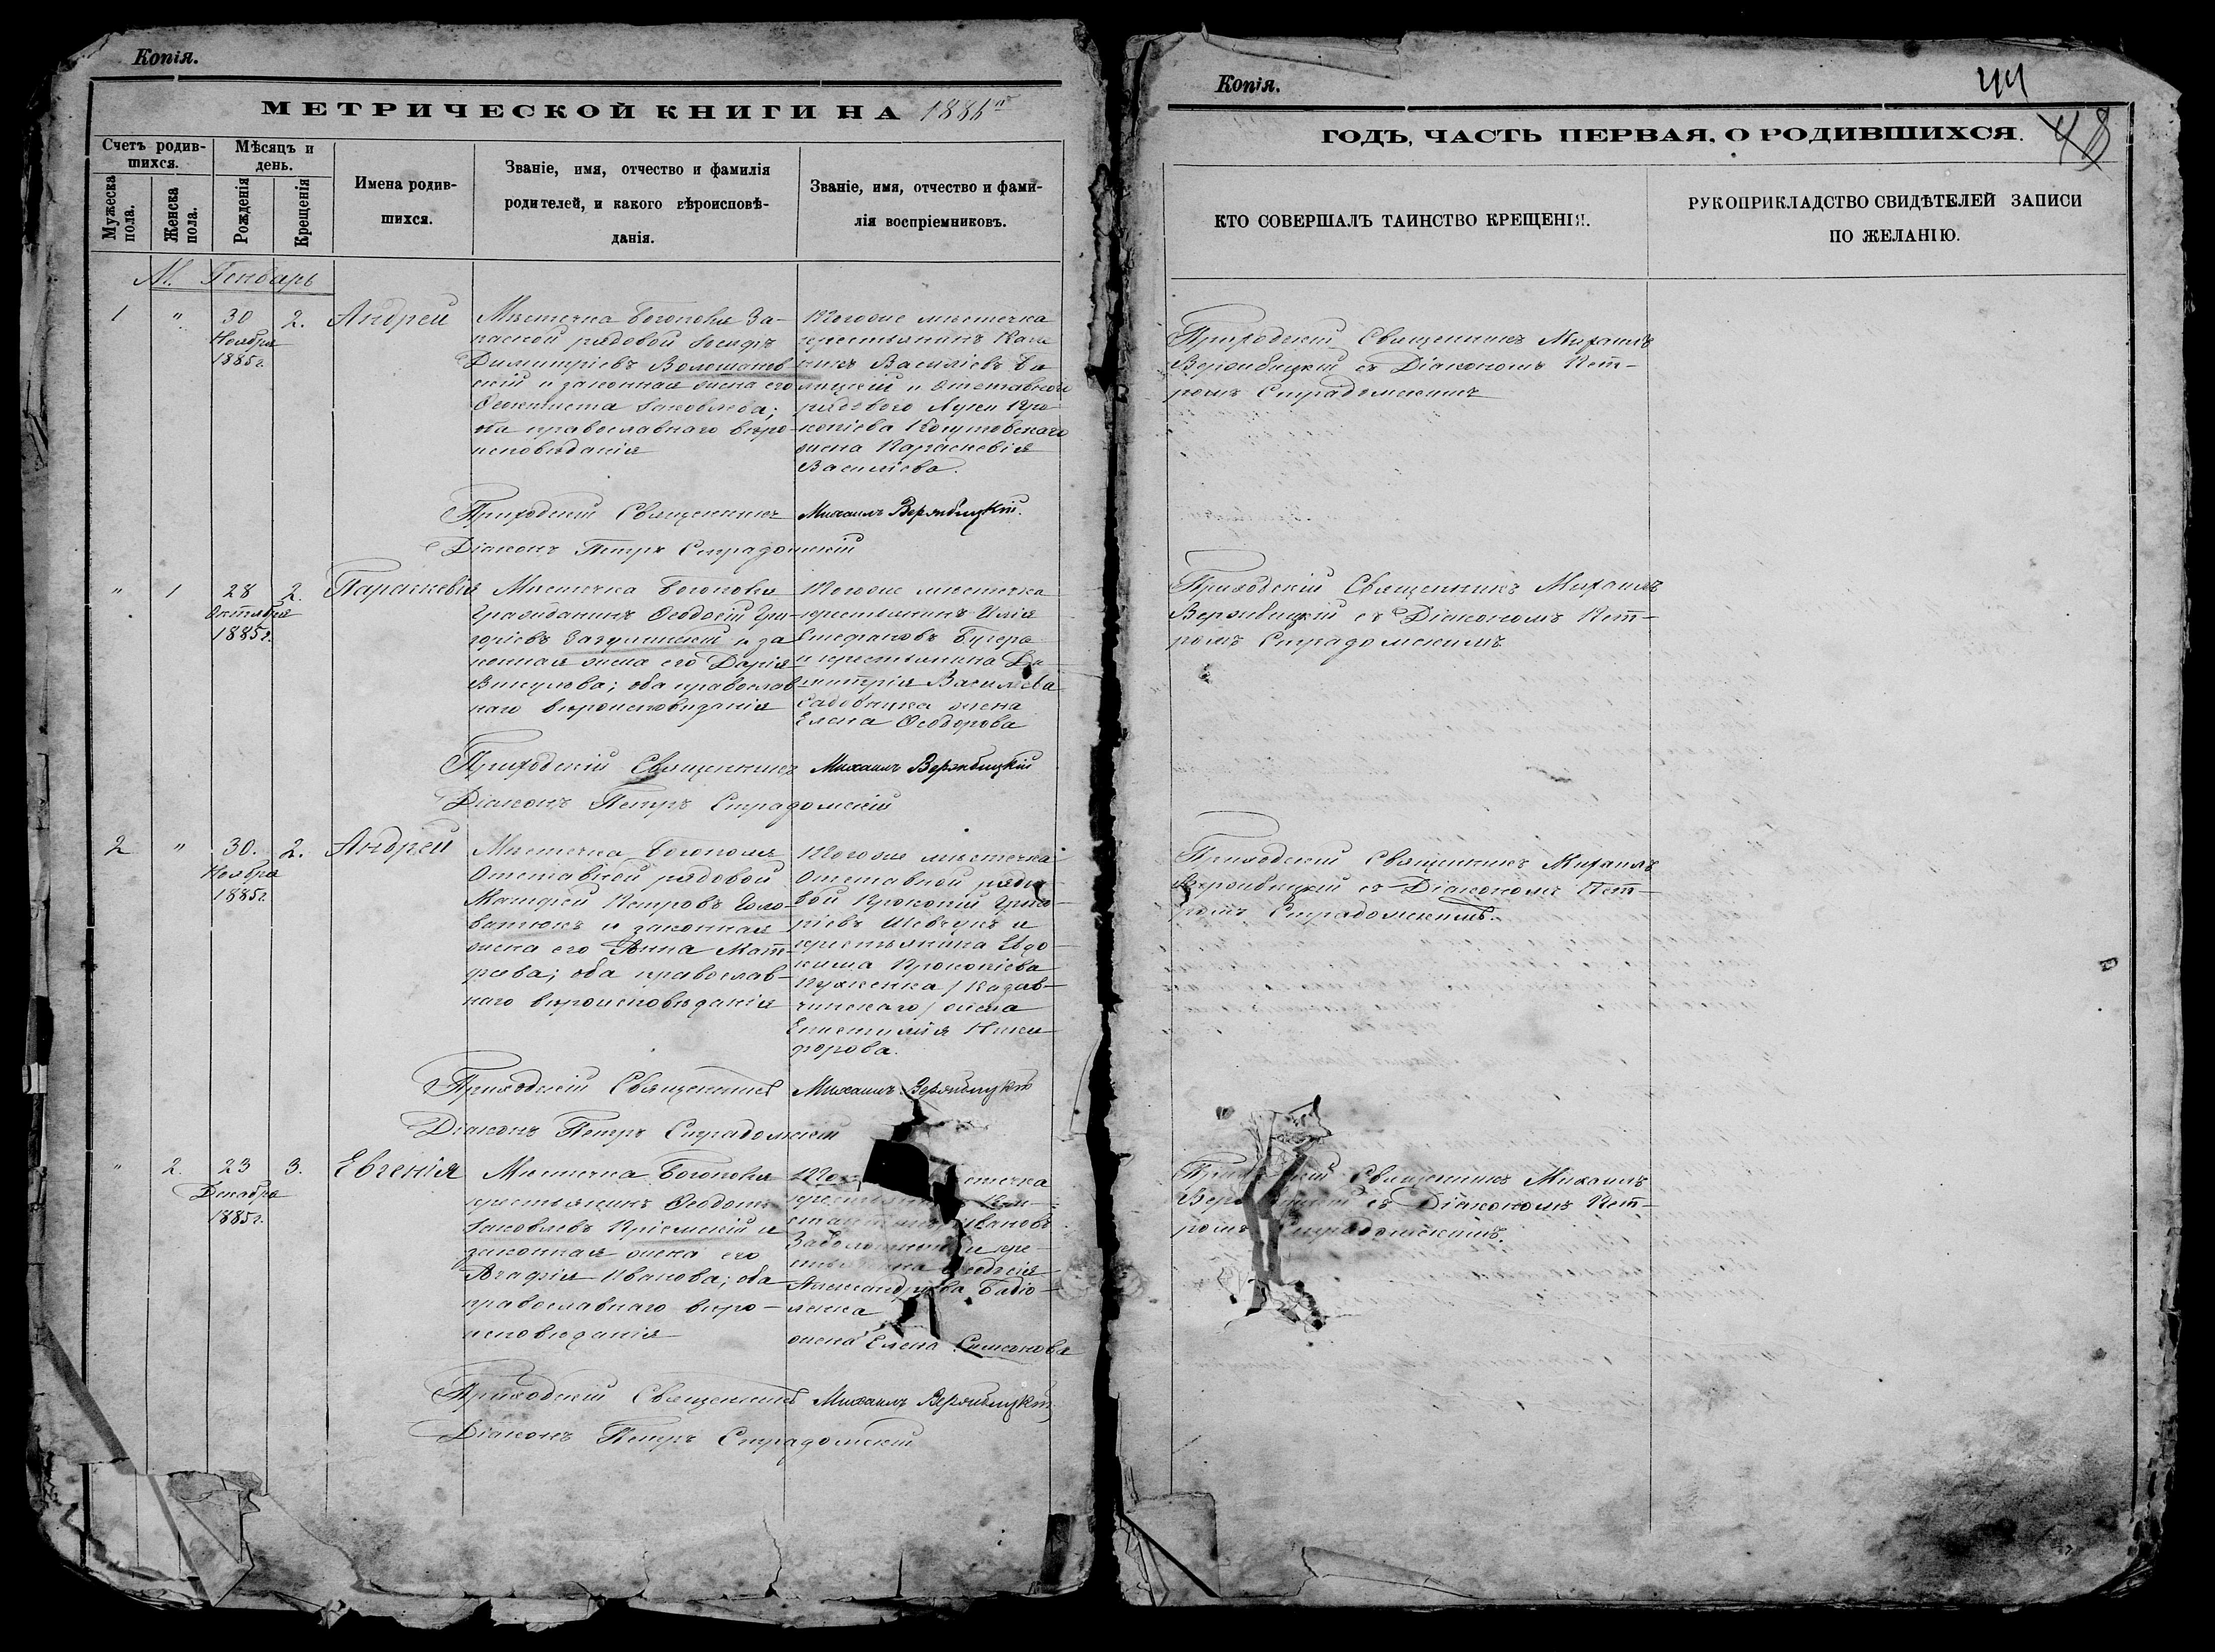 Копія.
МЕТРИЧЕСКОЙ КНИГИ НА 1886й
Счетъ родив-
шихся.
Мѣсяцъ и
день.
Мужеска
пола.
Женска
пола.
Рожденія
Крещенія
Имена родив-
шихся.
Званіе, имя, отчество и фамилія
родителей, и какого вѣроисповѣ-
данія.
Званіе, имя, отчество и фами-
лія воспріемниковъ.
М. Генварь
1 " 30 2. Андрей
Ноября
1885г.
Мѣстечка Богополя За-
пасной рядовой
Димитріевъ
скій и законная жена его
Яковлева;
православнаго вѣро-
исповѣданія
Тогоже мѣстечка
крестьянинъ
Василіевъ
и отставнаго
рядового Луки Про-
копіева
жена Параскевія
Василіева.
Приходскій Священникъ Михаилъ Вержбицкій.
Діаконъ Петръ Страдомскій
" 1 28 2. Параскевія
Октября
1885г.
Мѣстечка Богополя
Гражданинъ Ѳеодосій Гри-
горіевъ и за-
конная жена его Дарія
Викулова; оба православ-
наго вѣроисповѣданія
Тогоже мѣстечка
крестьянинъ Илія
Стефановъ
и крестьянина Ди-
митрія Василіева
Садовника жена
Елена Ѳеодорова
Приходскій Священникъ Михаилъ Вержбицкій
Діаконъ Петръ Страдомскій
2 " 30. 2. Андрей
Ноября
1885г.
Мѣстечка Богополя
Отставной рядовой
Матфей Петровъ Голо-
ватюкъ и законная
жена его Анна Мат-
феева; оба православ-
наго вѣроисповѣданія
Тогоже мѣстечка
Отставной рядо-
вой Прокопій Григо-
ріевъ Шевчукъ и
крестьянина Евдо-
кима Прокопіева
жена
Епистимія Ники-
форова.
Приходскій Священникъ Михаилъ Вержбицкій
Діаконъ Петръ Страдомскій
" 2. 23 3. Евгенія
Декабря
1885г.
Мѣстечка Богополя
крестьянинъ
Яковлевъ и
законная жена его
Агафія Иванова; оба
православнаго вѣро-
исповѣданія
Ивановъ
и кре-
Александрова
жена Елена Симеонова
Приходскій Священникъ Михаилъ Вержбицкій
Діаконъ Петръ Страдомскій
Копія.
44
48
ГОДЪ, ЧАСТЬ ПЕРВАЯ, О РОДИВШИХСЯ.
КТО СОВЕРШАЛЪ ТАИНСТВО КРЕЩЕНІЯ.
РУКОПРИКЛАДСТВО СВИДѢТЕЛЕЙ ЗАПИСИ
ПО ЖЕЛАНІЮ.
Приходскій Священникъ Михаилъ
Вержбицкій съ Діакономъ Пет-
ромъ Страдомскимъ
Приходскій Священникъ Михаилъ
Вержбицкій съ Діакономъ Пет-
ромъ Страдомскимъ.
Приходскій Священникъ Михаилъ
Вержбицкій съ Діакономъ Пет-
ромъ Страдомскимъ.
Священникъ Михаилъ
съ Діакономъ Пет-
ромъ Страдомскимъ.